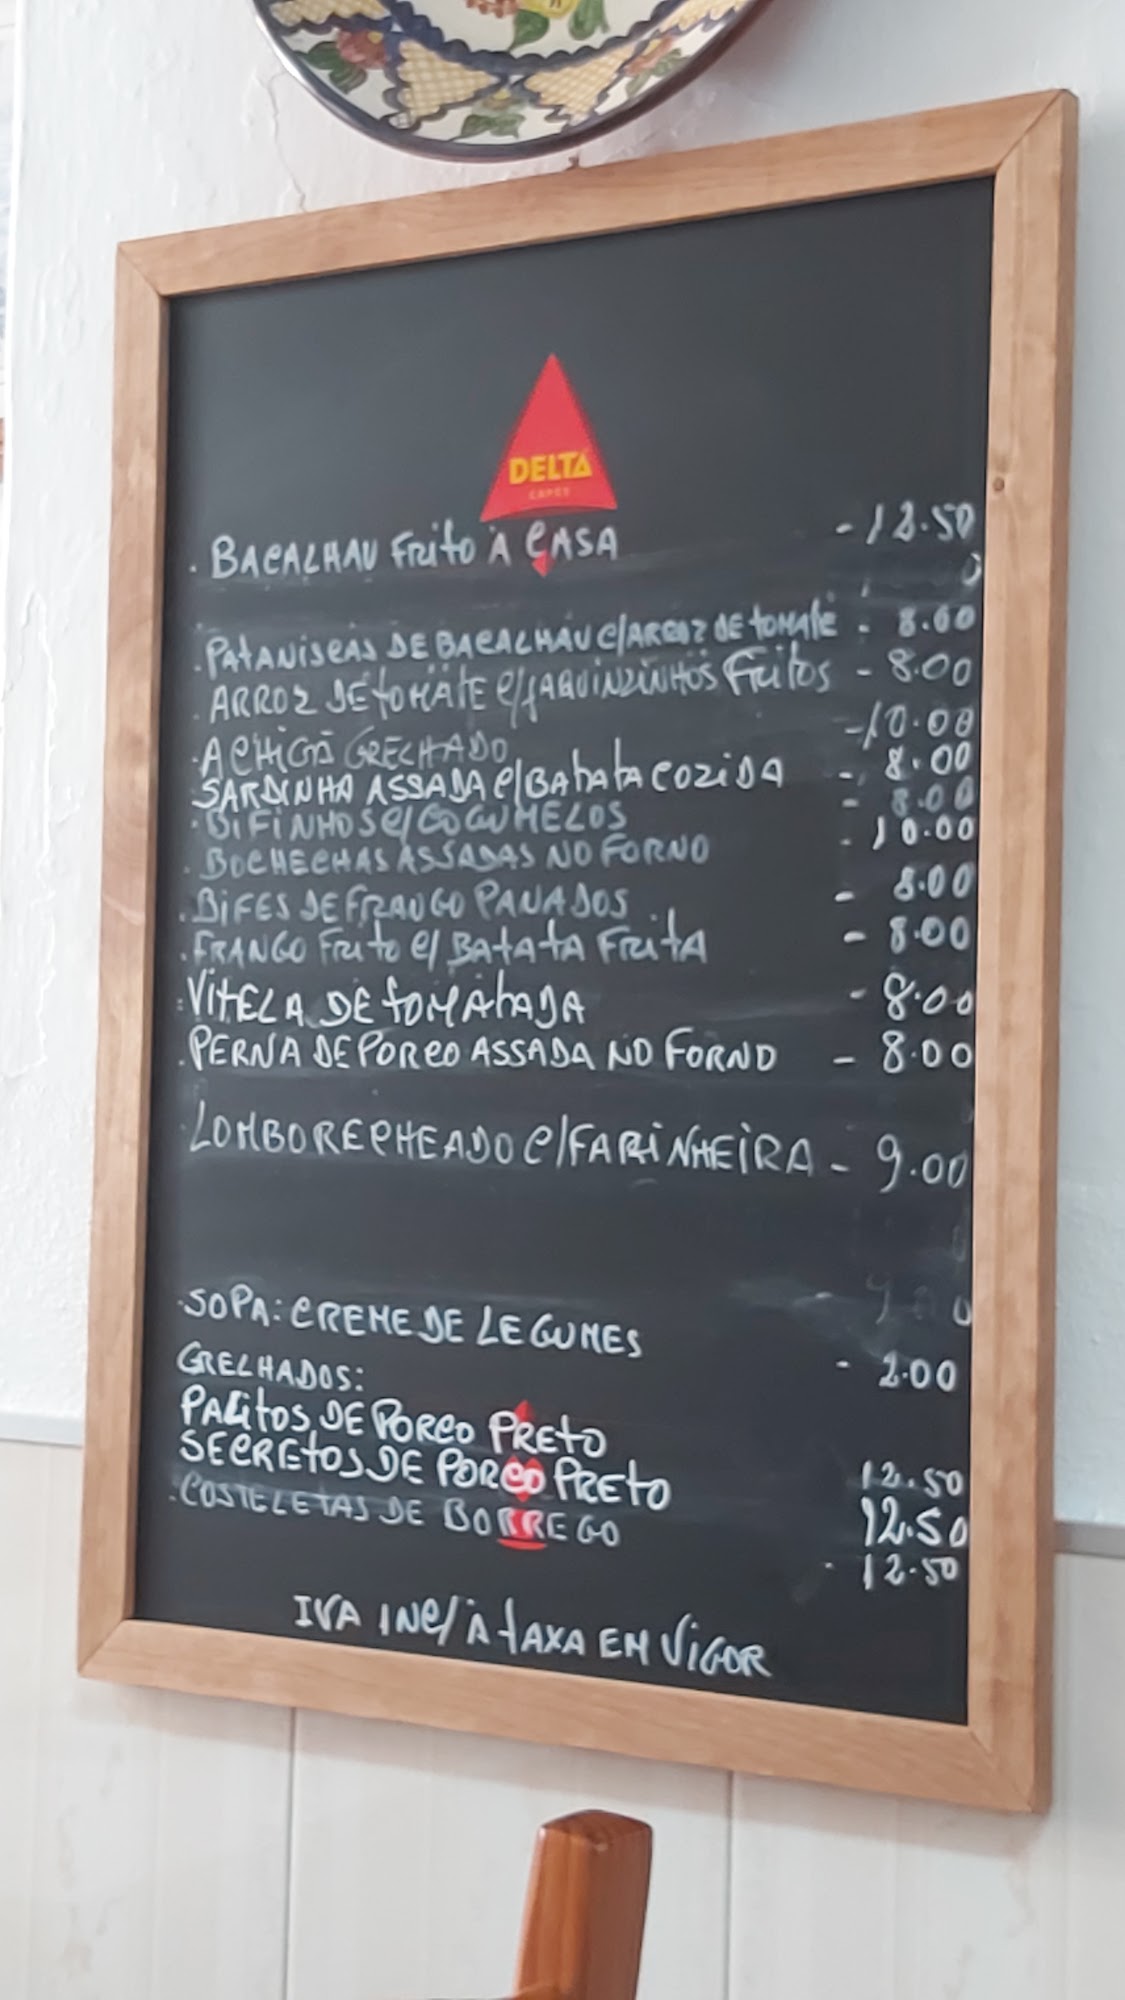 DELTA
CAFÉS
. BACALHAU Frito À CASA - 12.50
. PATANISCAS DE BACALHAU C/ARROZ DE tOMAtE . 8.00
. ARROZ DE tOMAtE C/JAQUINZINHOS FRitOS - 8.00
. ACHIGÃ GRELHADO -10.00
SARDINHA ASSADA C/BAtAtA COZIDA - 8.00
. BIFINHOS C/COGUMELOS - 8.00
. BOCHECHAS ASSADAS NO FORNO - 10.00
. BIFES DE FRANGO PANADOS - 8.00
. FRANGO FRito C/ BAtAtA FRitA - 8.00
. VItELA DE tOMAtADA - 8.00
. PERNA DE PORCO ASSADA NO FORNO - 8.00
LOMBO RECHEADO C/FARINHEIRA - 9.00
. SOPA: CREME DE LEGUMES - 2.00
GRELHADOS:
PALitOS DE PORCO PREtO 12.50
SECREtOS DE PORCO PREtO 12.50
. COSTELETAS DE BORREGO - 12.50
IVA INC/ À tAXA EM VIGOR